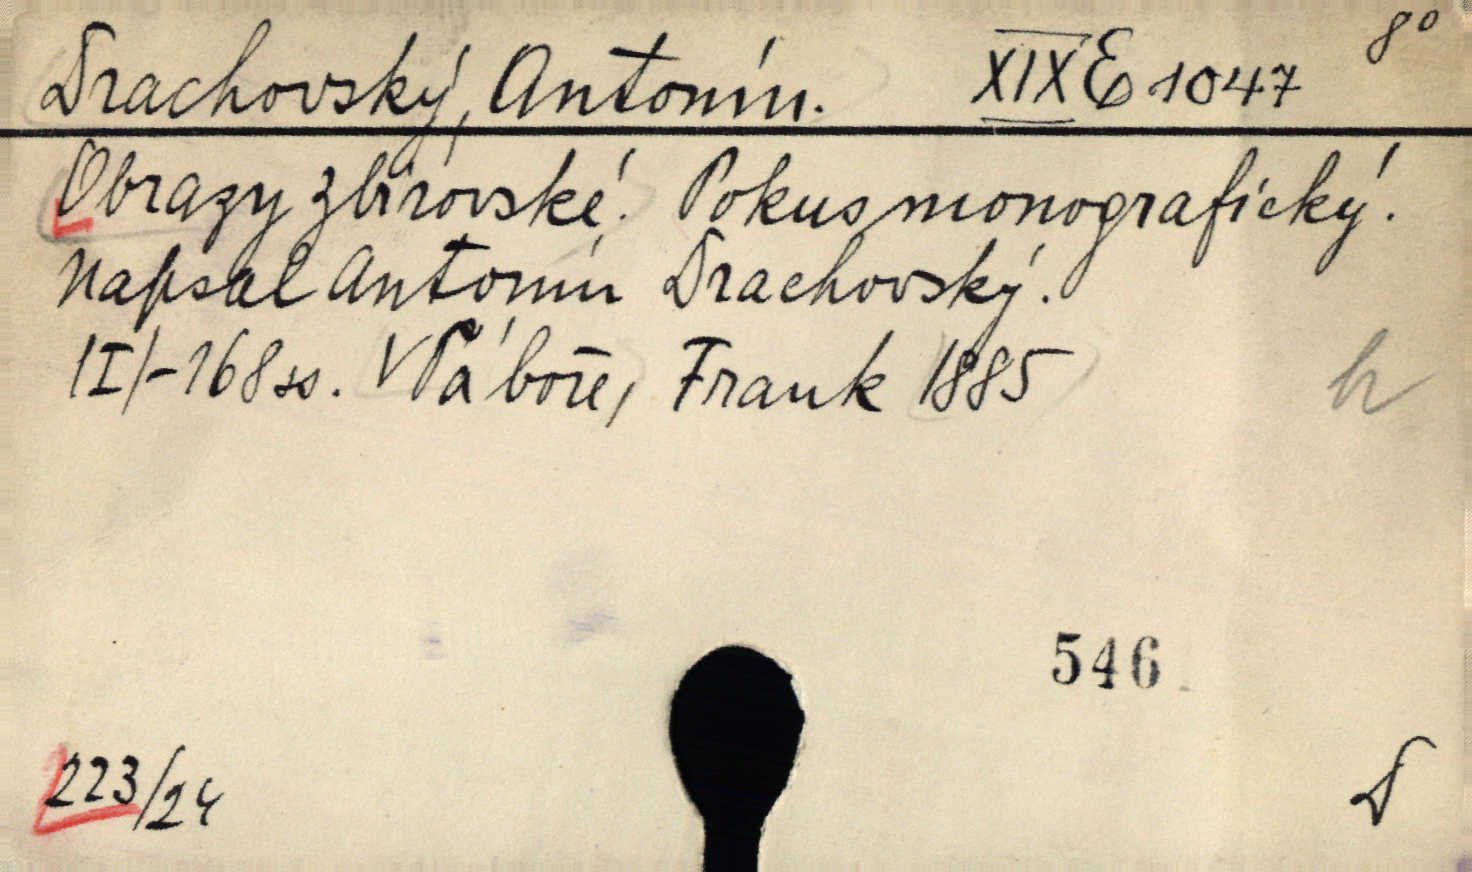 Drachovský, Antonín. XIX E 1047 8°
Obrazy zbirovské. Pokus monografický.
Napsal Antonín Drachovský.
/I/-168 ss. V Táboře, Frank 1885
h
546
223/24
D